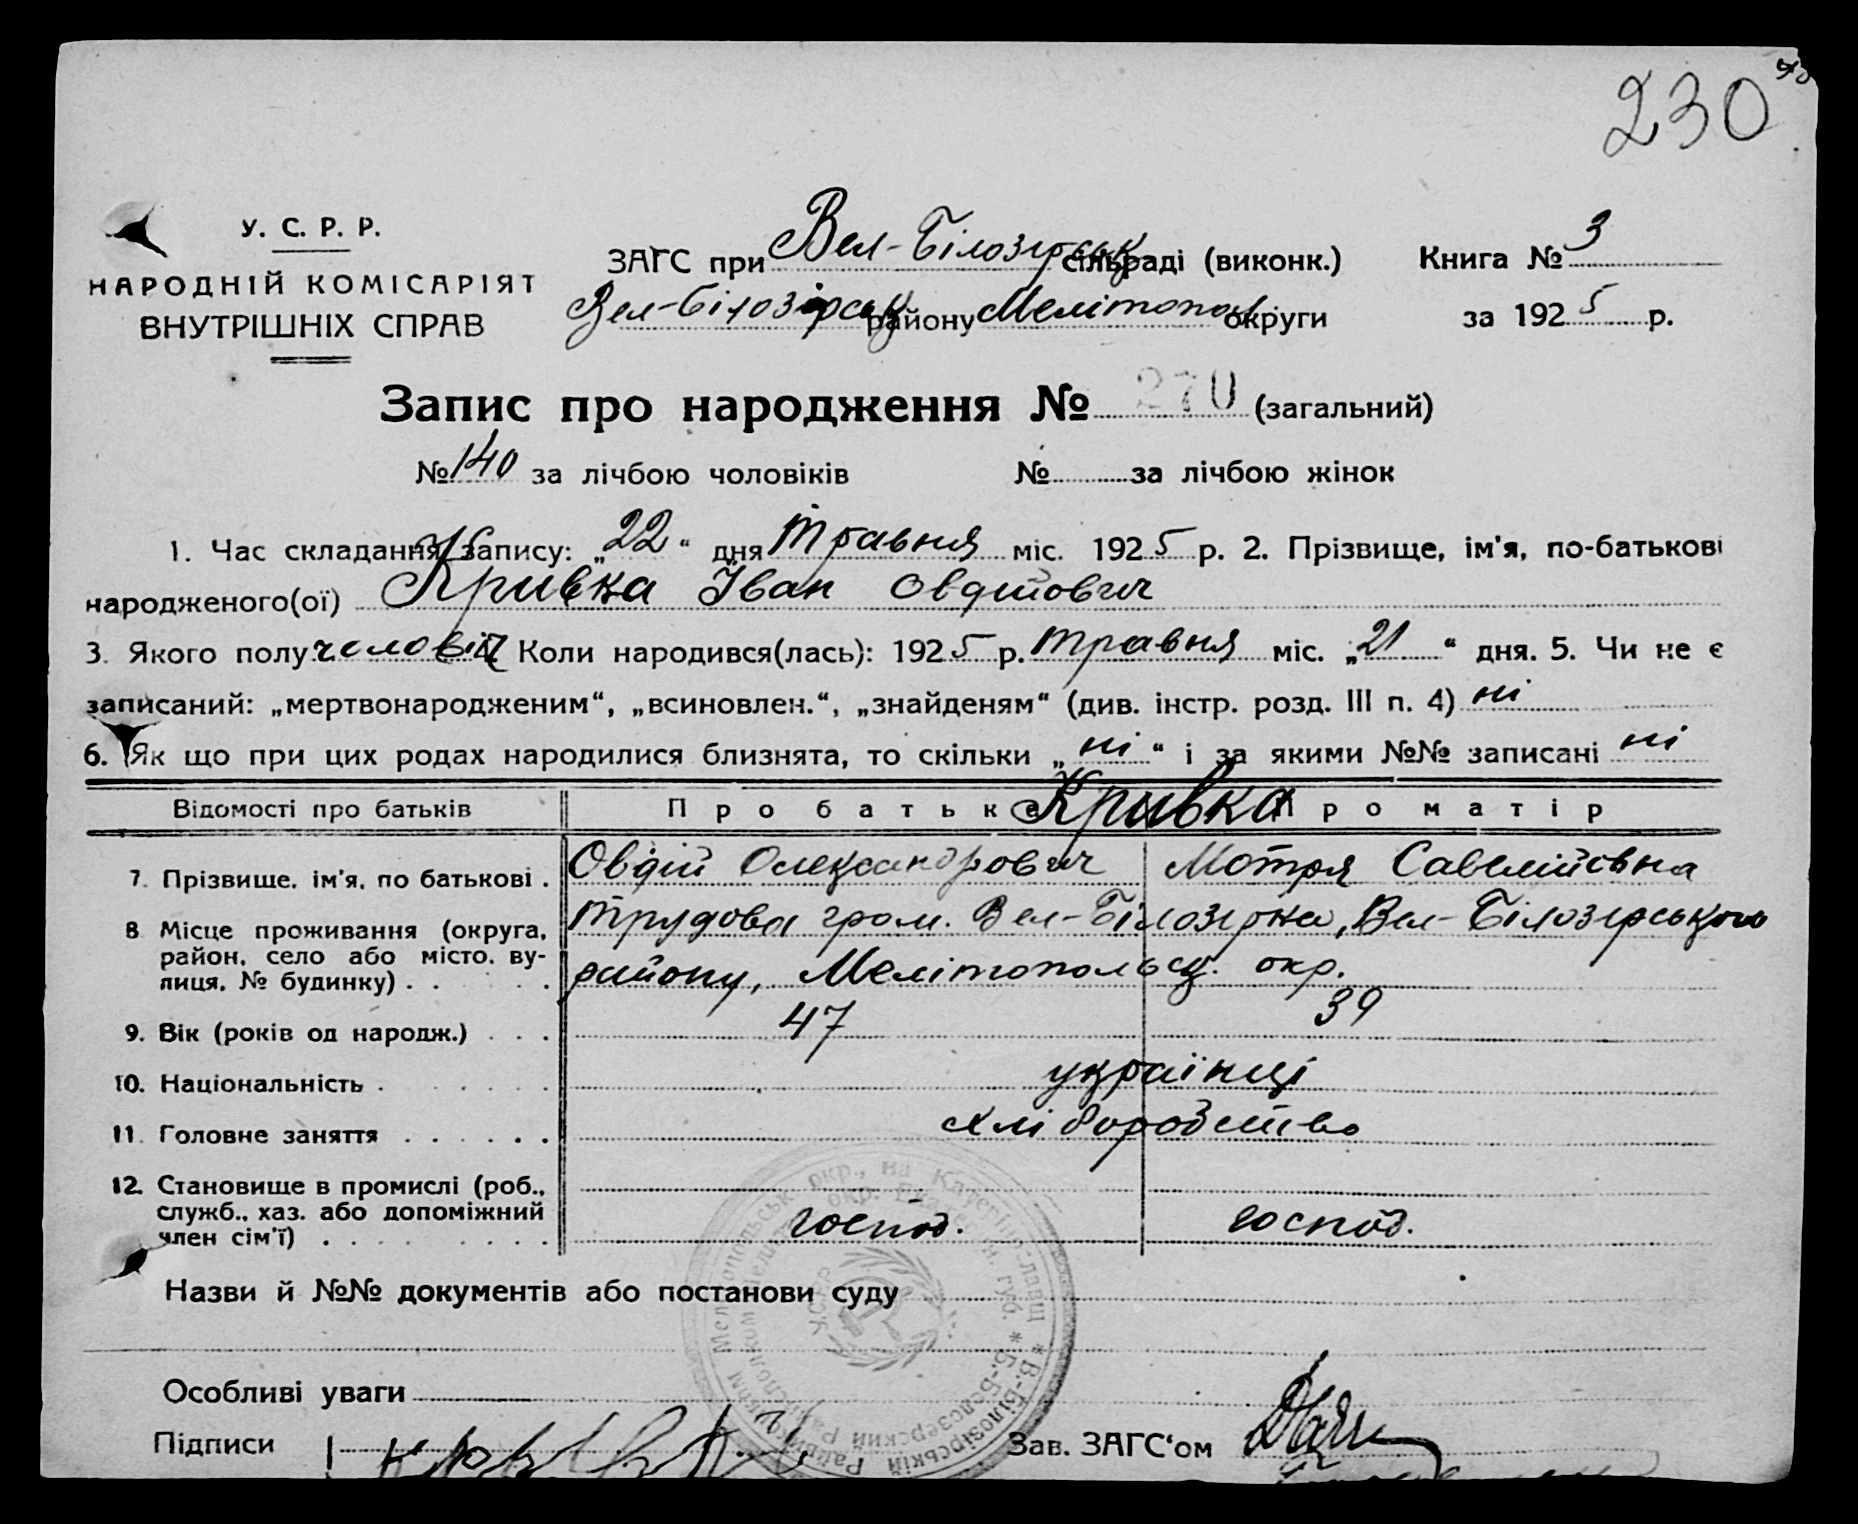 230
У. С. Р. Р.
НАРОДНІЙ КОМІСАРІЯТ
ВНУТРІШНІХ СПРАВ
ЗАГС при Вел-Білозірськ сільраді (виконк.) Книга № 3
Вел-Білозірськ району Мелітопол округи за 1925 р.
Запис про народження № 270 (загальний)
№ 140 за лічбою чоловіків № за лічбою жінок
1. Час складання запису: „22“ дня травня міс. 1925 р. 2. Прізвище, ім'я, по-батькові
народженого(ої) Кривка Іван Овдійович
3. Якого полу чоловіч Коли народився(лась): 1925 р. травня міс. „21“ дня. 5. Чи не є
записаний: „мертвонародженим“, „всиновлен.“, „знайденям“ (див. інстр. розд. III п. 4) ні
6. Як що при цих родах народилися близнята, то скільки „ні“ і за якими №№ записані ні
Відомості про батьків Про батька Кривка Про матір
7. Прізвище, ім'я, по батькові . Овдій Олександрович Мотря Савелійовна
8 Місце проживання (округа, район, село або місто, вулиця, № будинку) . . . . Трудова гром. Вел-Білозірка, Вел-Білозірського
району, Мелітопольськ. окр.
9. Вік (років од народж.) . . . 47 39
10. Національність . . . . . . українці
11. Головне заняття . . . . . . хліборобство
12. Становище в промислі (роб., служб., хаз. або допоміжний член сім'ї) . . . . . . . . . господ. господ.
Назви й №№ документів або постанови суду
Особливі уваги
Підписи Зав. ЗАГС'ом